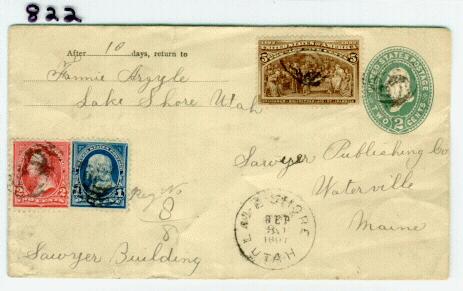 822
After 10 days, return to
Fannie Argyle
Lake Shore Utah
UNITED STATES OF AMERICA
5
UNITED STATES POSTAGE
TWO 2 CENTS
Sawyer Publishing Co
Waterville
Maine
2 2
TWO CENTS
1 1
Reg No
8
8
LAKE SHORE
SEP
UTAH
Sawyer Building